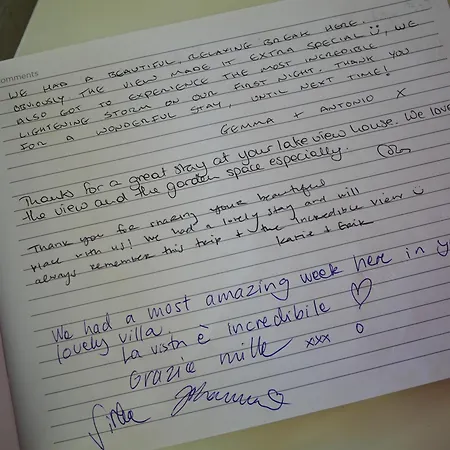 omments
WE HAD A BEAUTIFUL, RELAXING BREAK HERE.
OBVIOUSLY THE VIEW MADE IT EXTRA SPECIAL ☺, WE
ALSO GOT TO EXPERIENCE THE MOST INCREDIBLE
LIGHTENING STORM ON OUR FIRST NIGHT. THANK YOU
FOR A WONDERFUL STAY, UNTIL NEXT TIME!
GEMMA + ANTONIO X
Thanks for a great stay at your lake view house. We love
the view and the garden space especially.
Thank you for sharing your beautiful
place with us! We had a lovely stay and will
always remember this trip + the incredible view ☺
Katie + Erik
We had a most amazing week here in y
lovely villa.
La vista è incredibile ♡
Grazie mille xxx o